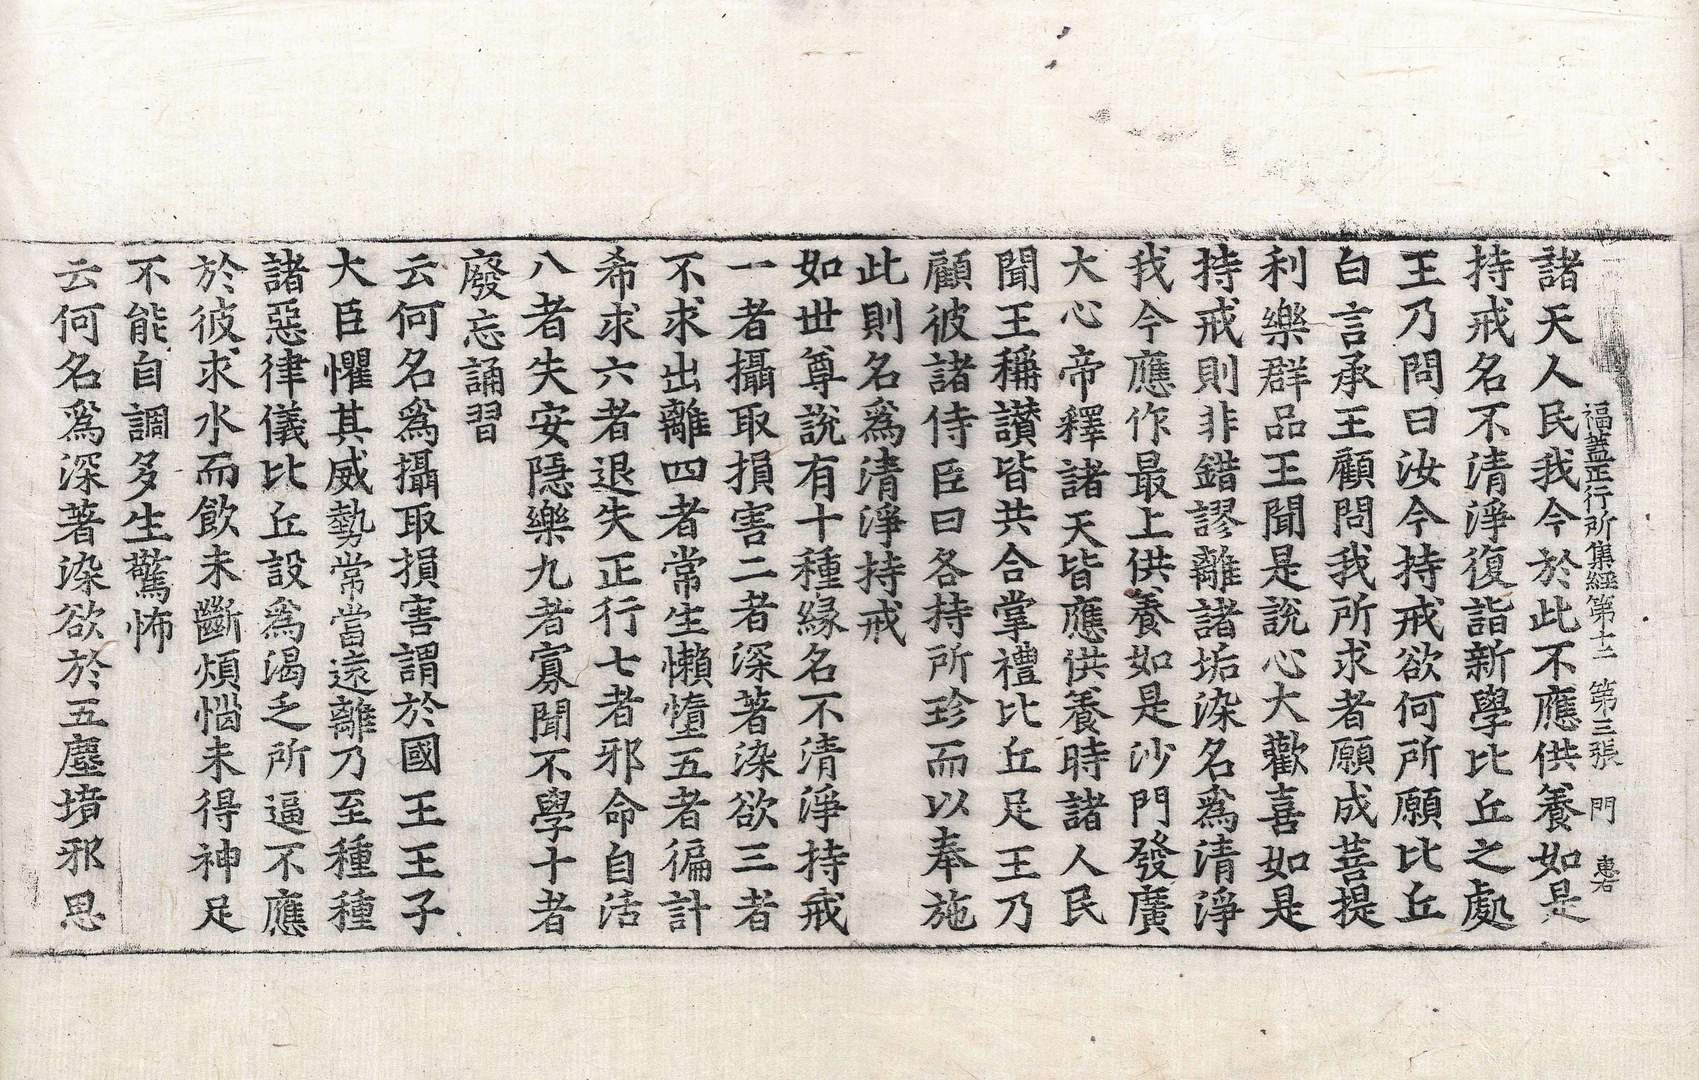 福蓋正行所集經第十二 第三張 門 惠右
諸天人民我今於此不應供養如是
持戒名不清淨復詣新學比丘之處
王乃問曰汝今持戒欲何所願比丘
白言承王顧問我所求者願成菩提
利樂群品王聞是說心大歡喜如是
持戒則非錯謬離諸垢染名爲清淨
我今應作最上供養如是沙門發廣
大心帝釋諸天皆應供養時諸人民
聞王稱讃皆共合掌禮比丘足王乃
顧彼諸侍臣曰各持所珍而以奉施
此則名爲清淨持戒
如世尊說有十種緣名不清淨持戒
一者攝取損害二者深著染欲三者
不求出離四者常生懶惰五者徧計
希求六者退失正行七者邪命自活
八者失安隱樂九者寡聞不學十者
廢忘誦習
云何名爲攝取損害謂於國王王子
大臣懼其威勢常當遠離乃至種種
諸惡律儀比丘設爲渴乏所逼不應
於彼求水而飮未斷煩惱未得神足
不能自調多生驚怖
云何名爲深著染欲於五塵境邪思